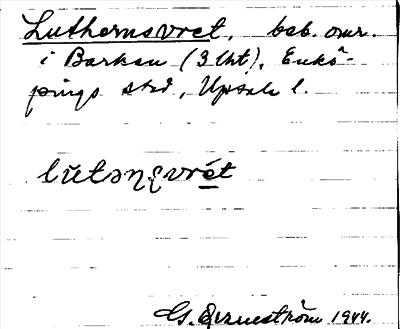 Luthernsvret, beb. omr.
i Barkan (3 lht), Enkö-
pings stad, Upsala l.
lŭtəṇʂvrét
G. Erneström 1944.